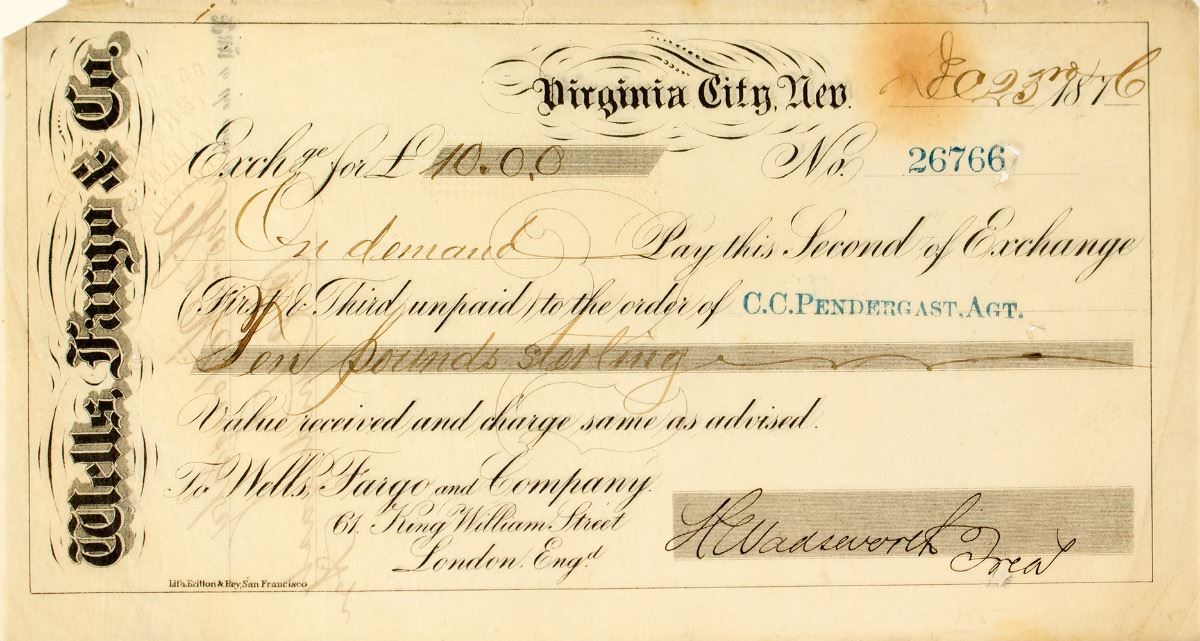 Wells, Fargo & Co.
Virginia City, Nev. 23rd 1876
Exchge for £ 10.0.0 No. 26766
On demand Pay this Second of Exchange
(First & Third unpaid) to the order of C.C. PENDERGAST, AGT.
Ten pounds sterling
Value received and charge same as advised.
To Wells, Fargo and Company.
61. King William Street
London. Engd
H Wadsworth
Treas
Lith. Britton & Rey, San Francisco